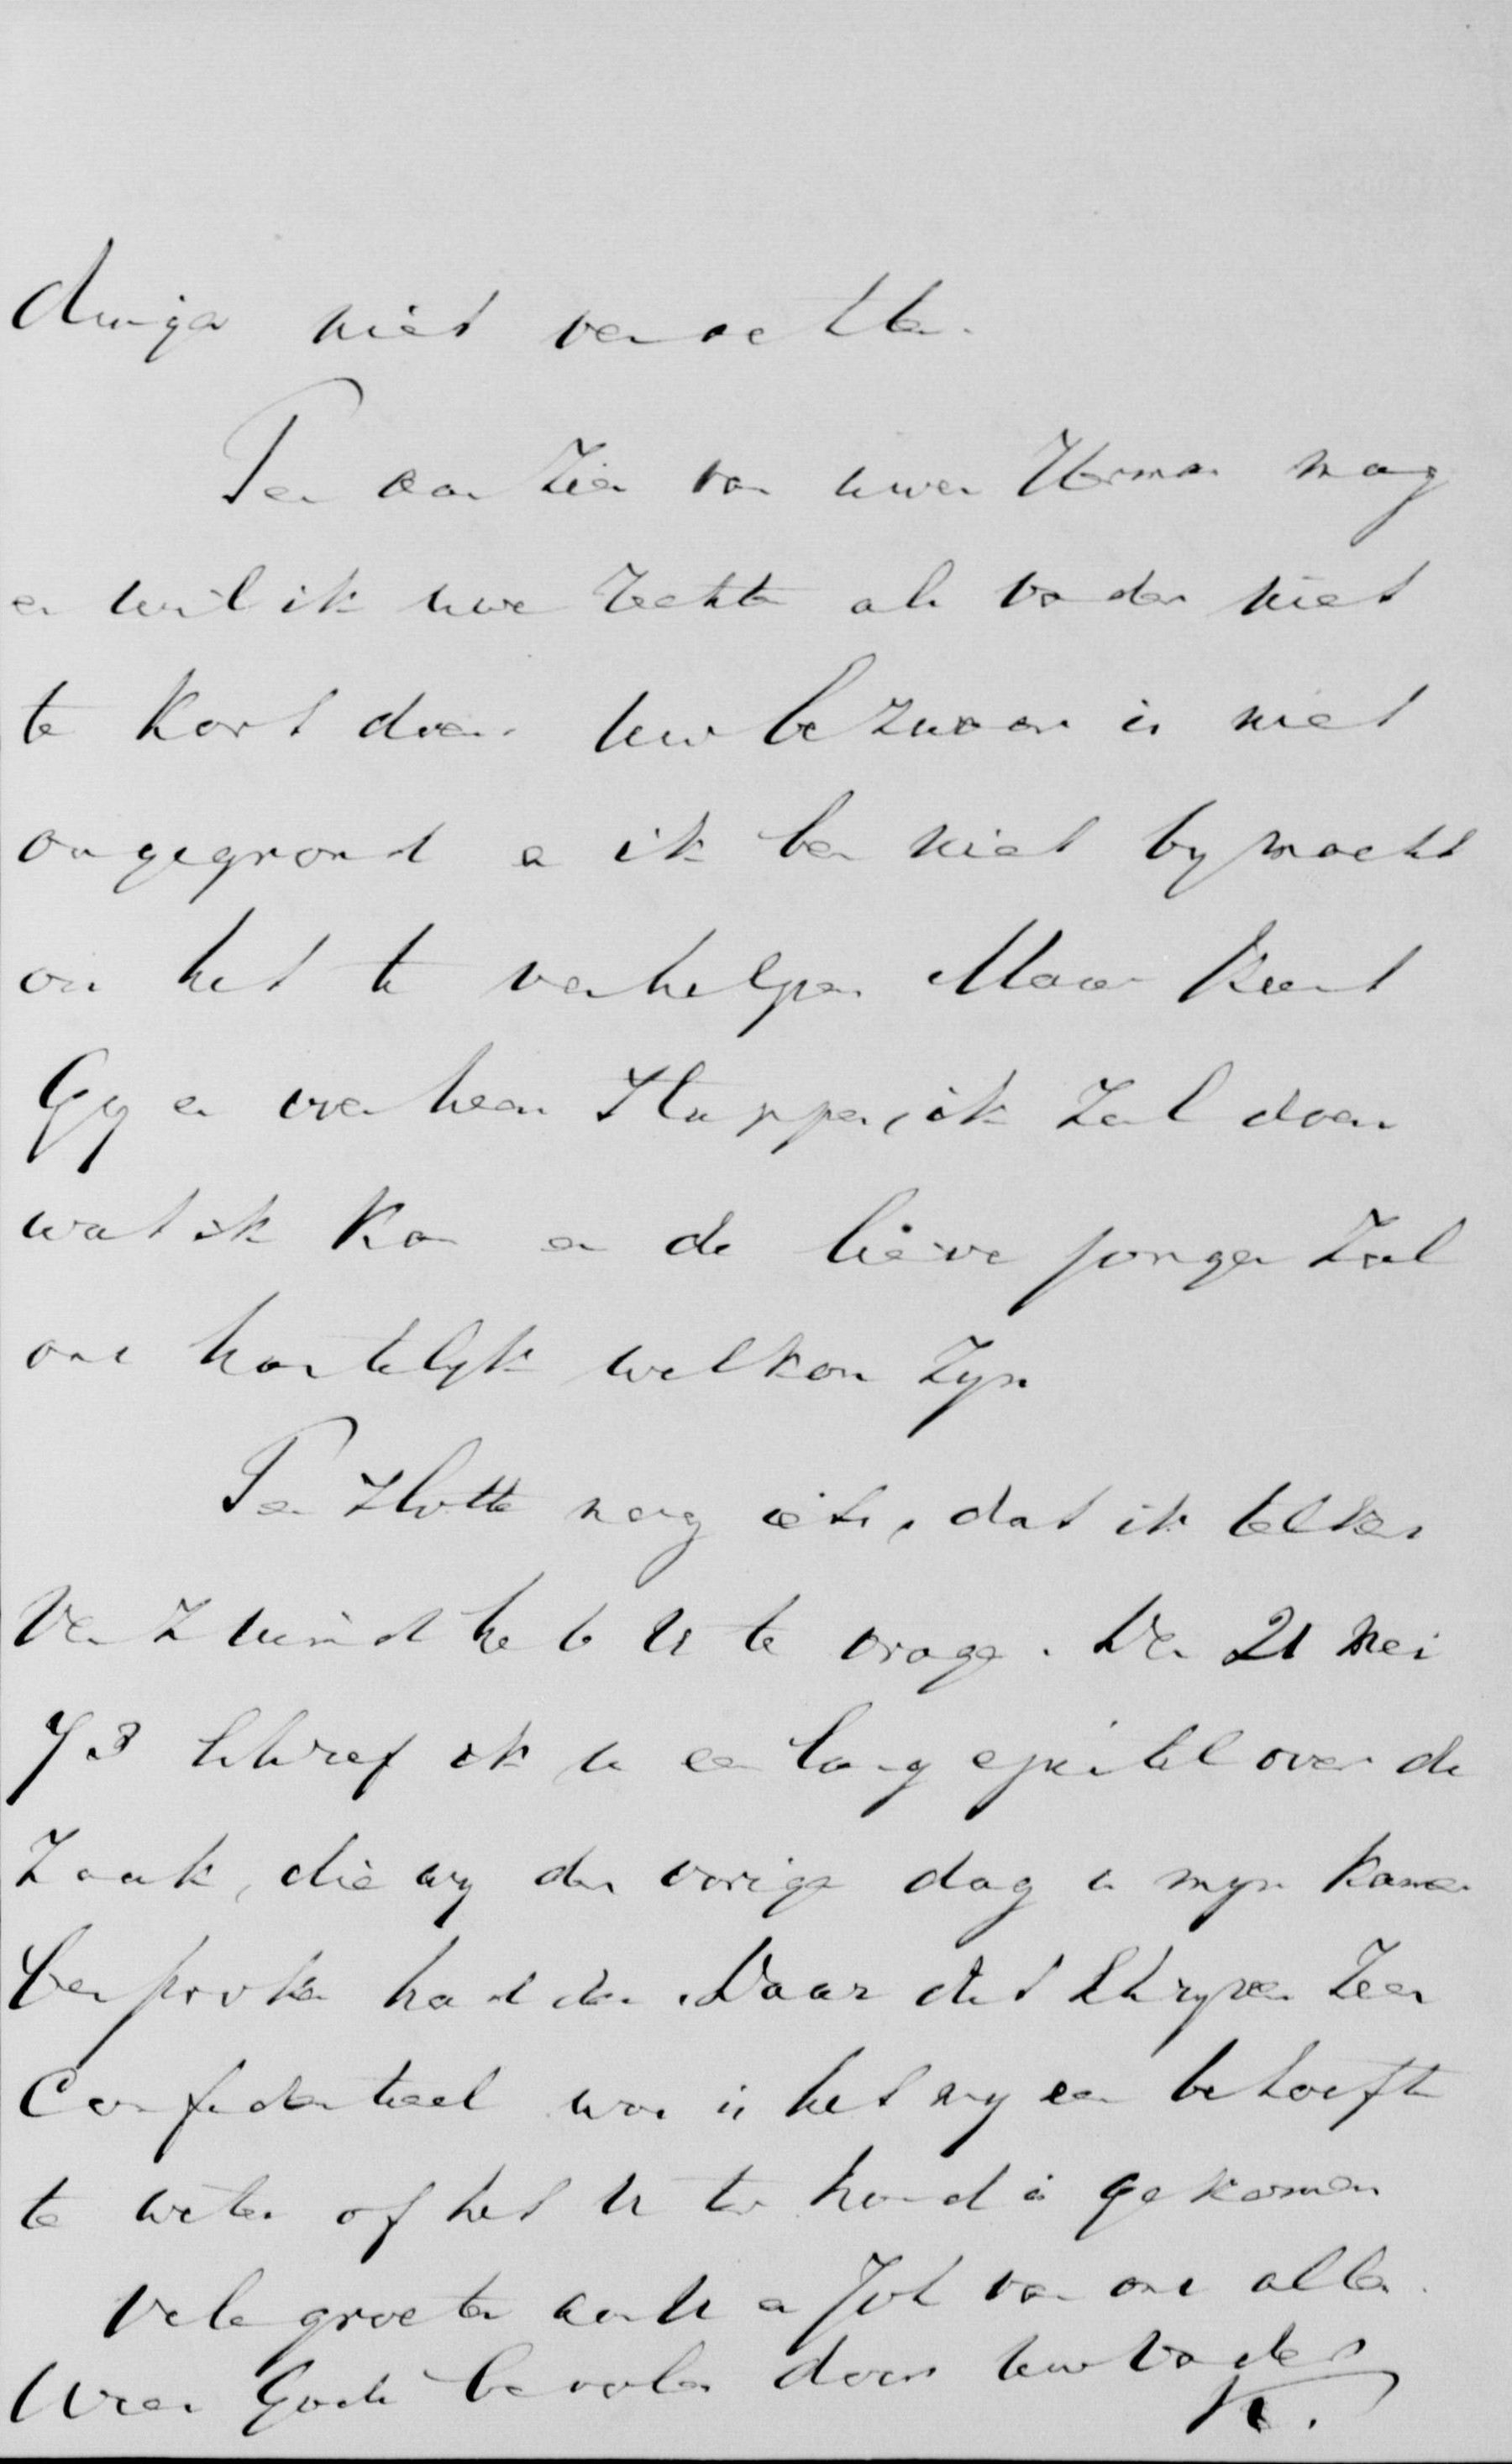 dingen niet verachten.
Ten aanzien van uwen Herman mag
en wil ik uwe rechten als vader niet
te kort doen. Uw bezwaar is niet
ongegrond en ik ben niet by macht
om het te verhelpen. Maar kunt
Gy er over heen stappen, ik zal doen
wat ik kan en de lieve jongen zal
ons hartelyk welkom zyn
Ten slotte nog iets, dat ik telkens
verzuimd heb U te vragen. Den 21 Mei
73 schreef ik u een lang epistel over de
zaak, die wy den vorigen dag in myn kamer
besproken hadden. Daar dit schryven zeer
Confidentieel was is het my een behoefte
te weten of het U ter hand is gekomen
Vele groeten aan U en Joh van ons allen.
Wees Gode bevolen door uw Vader
K.